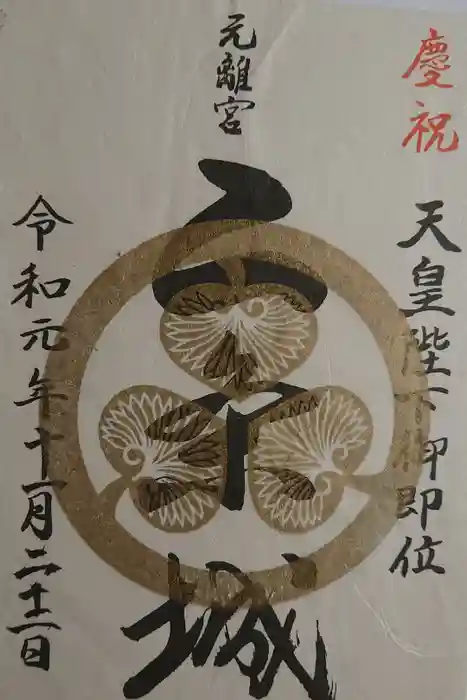 慶祝
天皇陛下御即位
元離宮
二条城
令和元年十一月二十二日